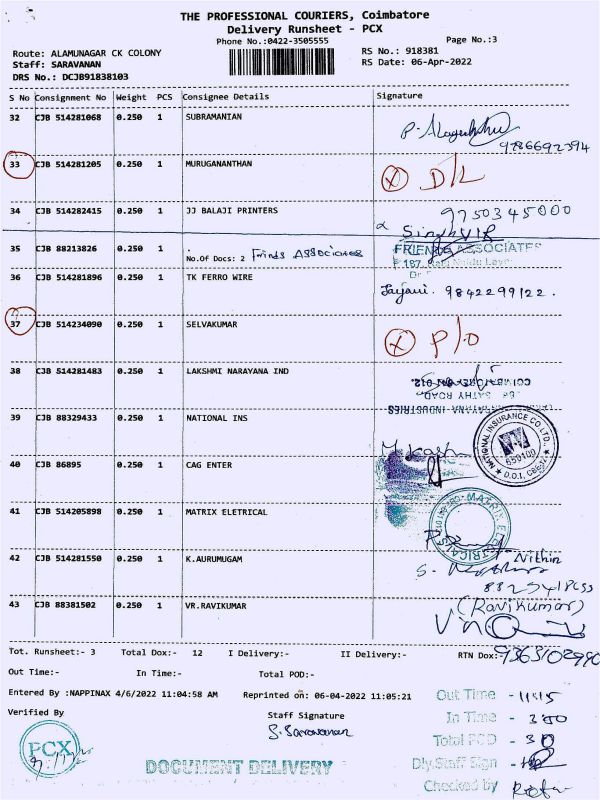 THE PROFESSIONAL COURIERS, Coimbatore
Delivery Runsheet - PCX
Phone No.:0422-3505555
Page No.:3
Route: ALAMUNAGAR CK COLONY
Staff: SARAVANAN
DRS No.: DCJB91838103
RS No.: 918381
RS Date: 06-Apr-2022
S No Consignment No Weight PCS Consignee Details Signature
32 CJB 514281068 0.250 1 SUBRAMANIAN
9786692394
33 CJB 514281205 0.250 1 MURUGANANTHAN X D/L
34 CJB 514282415 0.250 1 JJ BALAJI PRINTERS 9750345000
35 CJB 88213826 0.250 1 .
No.Of Docs: 2 Frinds ASSOCIATES
FRIENDS ASSOCIATES
36 CJB 514281896 0.250 1 TK FERRO WIRE 9842299122.
37 CJB 514234090 0.250 1 SELVAKUMAR X P/O
38 CJB 514281483 0.250 1 LAKSHMI NARAYANA IND
SATHY ROAD
LAKSHMI NARAYANA INDUSTRIES
39 CJB 88329433 0.250 1 NATIONAL INS
NATIONAL INSURANCE CO. LTD.
40 CJB 86895 0.250 1 CAG ENTER
41 CJB 514205898 0.250 1 MATRIX ELETRICAL
MATRIX ELECTRICALS
42 CJB 514281550 0.250 1 K.AURUMUGAM
Nithin
43 CJB 88381502 0.250 1 VR.RAVIKUMAR
(Ravikumar)
Tot. Runsheet:- 3 Total Dox:- 12 I Delivery:- II Delivery:- RTN Dox:-
Out Time:- In Time:- Total POD:-
Entered By :NAPPINAX 4/6/2022 11:04:58 AM Reprinted on: 06-04-2022 11:05:21
Verified By
Staff Signature
S. Saravanan
Out Time - 1115
In Time - 300
Total POD - 30
Dly.Staff Sign
Checked by
PCX
DOCUMENT DELIVERY